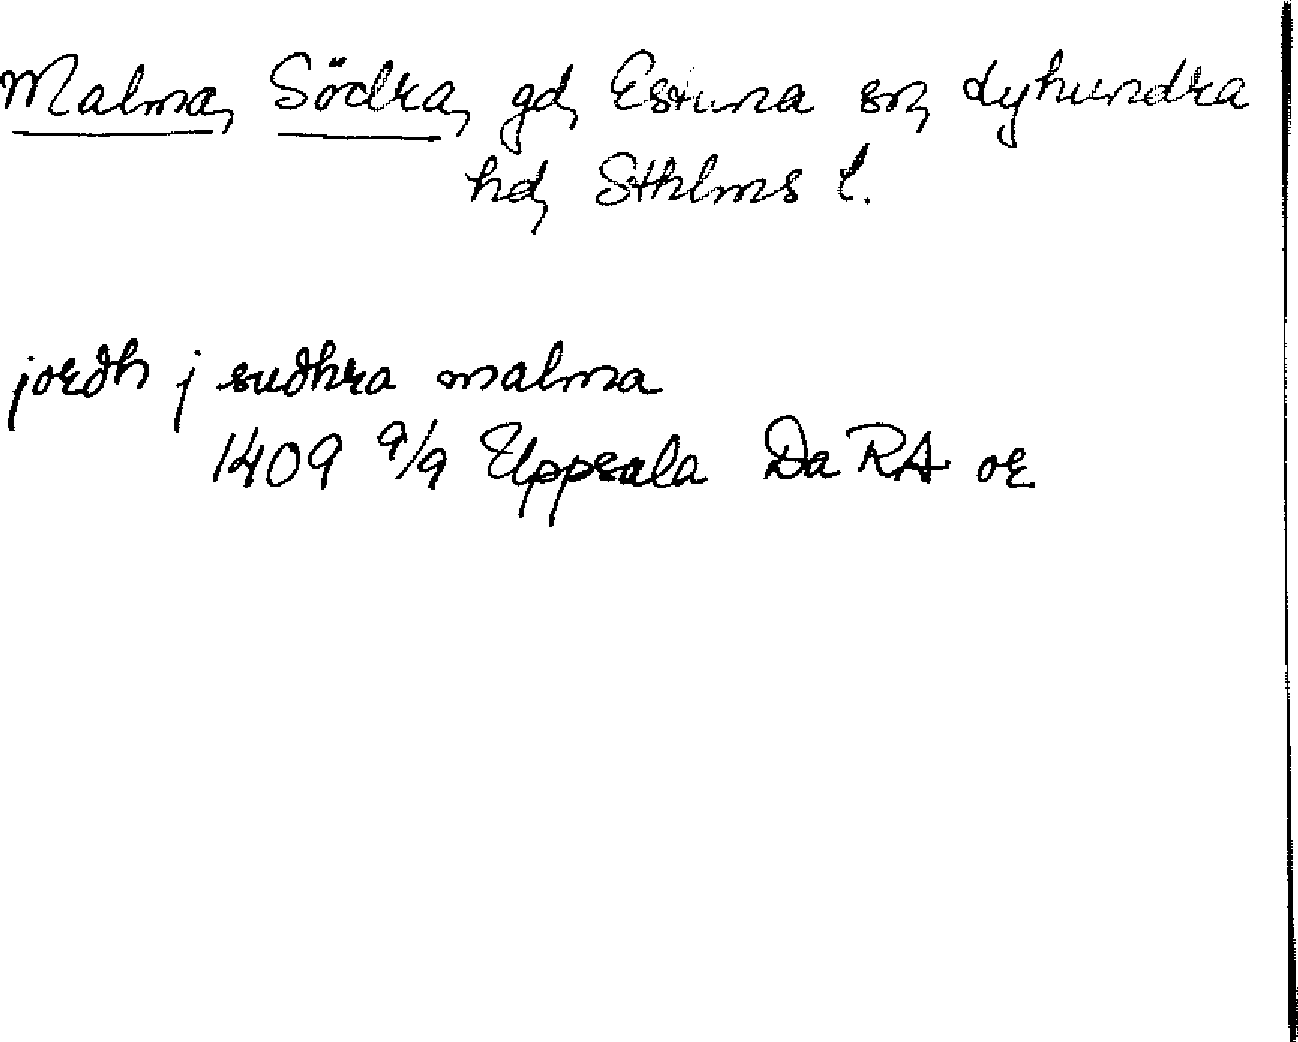 Malma, Södra, gd, Estuna sn, Lyhundra
hd, Sthlms l.
jordh j sudhra malma
1409 9/9 Uppsala Da RA or